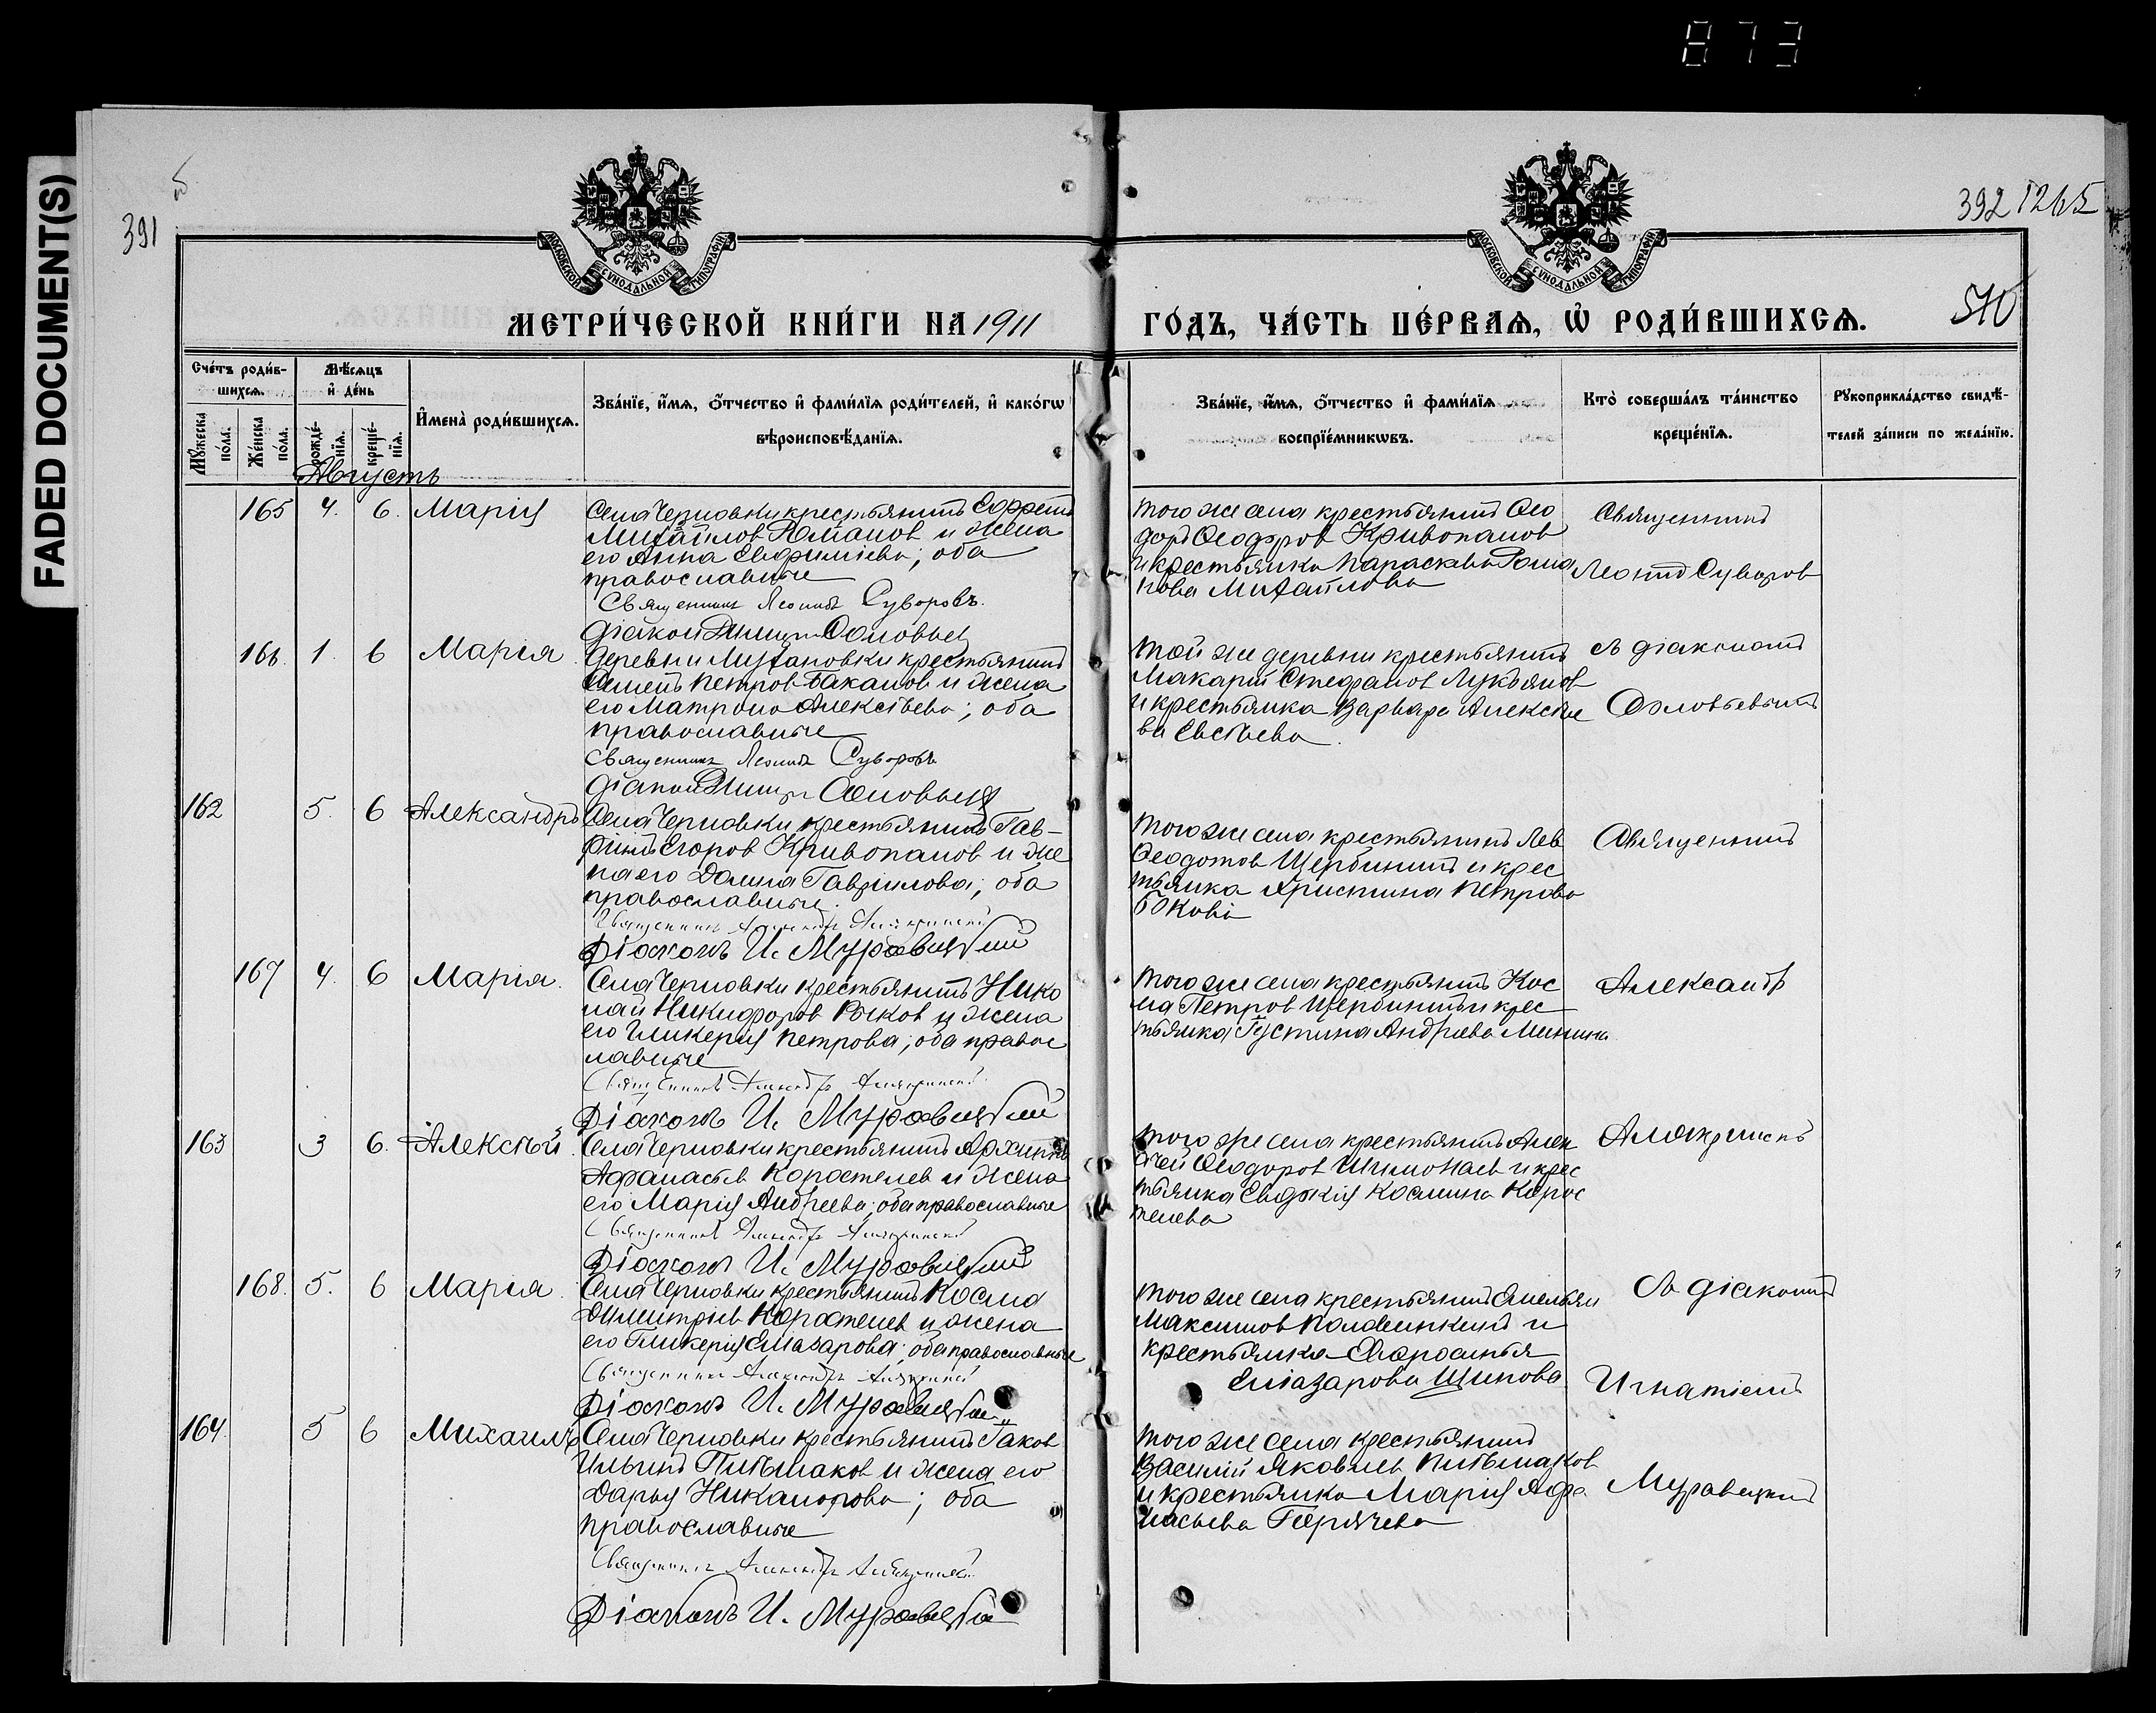 873
FADED DOCUMENT(S)
391
392 1265
510
МОСКОВСКОЙ СѴНОДАЛЬНОЙ ТИПОГРАФІИ
МОСКОВСКОЙ СѴНОДАЛЬНОЙ ТИПОГРАФІИ
МЕТРИ́ЧЕСКОЙ КНИ́ГИ НА 1911
ГО́ДЪ, ЧА́СТЬ ПЕ́РВАѦ, Ѡ҆ РОДИ́ВШИХСѦ.
Сче́тъ роди́в-
шихсѧ.
Мꙋ́жеска по́ла.
Же́нска по́ла.
Мѣ́сѧцъ
и҆ де́нь
рожде́-нїѧ.
креще́-нїѧ.
И҆мена̀ роди́вшихсѧ.
Зва́нїе, и҆́мѧ, ѻ҆́тчество и҆ фами́лїѧ роди́телей, и҆ како́гѡ
вѣроисповѣ́данїѧ.
Зва́нїе, и҆́мѧ, ѻ҆́тчество и҆ фами́лїѧ
воспрїе́мникѡвъ.
Кто̀ соверша́лъ та́инство
креще́нїѧ.
Рꙋкоприкла́дство свидѣ́-
телей за́писи по жела́нїю.
Августъ
165 4. 6. Марія
Села Черновки крестьянинъ Ефремъ
Михайлов Романов и жена
его Анна Евфиміева; оба
православные
Священникъ Леонидъ Суворовъ.
Діаконъ Димитр Соловьев
того же села крестьянинъ Ѳео
доръ Ѳеодоров Кривопалов
и крестьянка Параскева Рома
нова Михайлова
Священникъ
Леонид Суворов
166. 1. 6 Марія.
Деревни крестьянинъ
Петров Баканов и жена
его Матрона Алексѣева; оба
православные
Священникъ Леонидъ Суворовъ
Діаконъ Димитр Соловьев
той же деревни крестьянинъ
Макарий Стефанов Лукьянов
и крестьянка Варвара Алексѣе
ва Евсѣева.
съ діакономъ
Соловьевымъ
162 5. 6 Александръ
Села Черновки крестьянинъ Гав-
риилъ Егоров Кривопалов и же
на его Домна Гавриилова; оба
православные.
Священникъ Александръ
Діаконъ И. Муравицкій
того же села крестьянинъ Лев
Ѳеодотов Щербининъ и крес
тьянка Христина Петрова
Бокова
Священникъ
167 4. 6 Марія.
Села Черновки крестьянинъ Нико
лай Никифоров Рыков и жена
его Гликерія Петрова; оба правос
лавные
Священникъ Александръ
Діаконъ И. Муравицкій
того же села крестьянинъ Кос
ма Петров Щербининъ и крес
тьянка Іустина Андреева Минина
Александр
163 3 6. Алексѣй.
Села Черновки крестьянинъ Архиппъ
Афанасьев Коростелев и жена
его Марія Андреева; оба православные
Священникъ Александръ
Діаконъ И. Муравицкій
того же села крестьянинъ Алек
сѣй Ѳеодоров и крес
тьянка Евдокія Космина Корос
телева
168. 5. 6 Марія.
Села Черновки крестьянинъ Косма
Димитріев Коростелев и жена
его Гликерія Елиазарова; оба православные
Священникъ Александръ
Діаконъ И. Муравицкій
того же села крестьянинъ Емельян
Максимов и
крестьянка Евфросинья
Елиазарова Шипова
съ діакономъ
Игнатіемъ
164. 5 6 Михаилъ
Села Черновки крестьянинъ Іаков
Ильинъ Питьмаков и жена его
Дарья Никанорова; оба
православные
Священникъ Александръ
Діаконъ И. Муравицкій
того же села крестьянинъ
Василій Яковлев Питьмаков
и крестьянка Марія Афа
насьева Горячева
Муравицкимъ